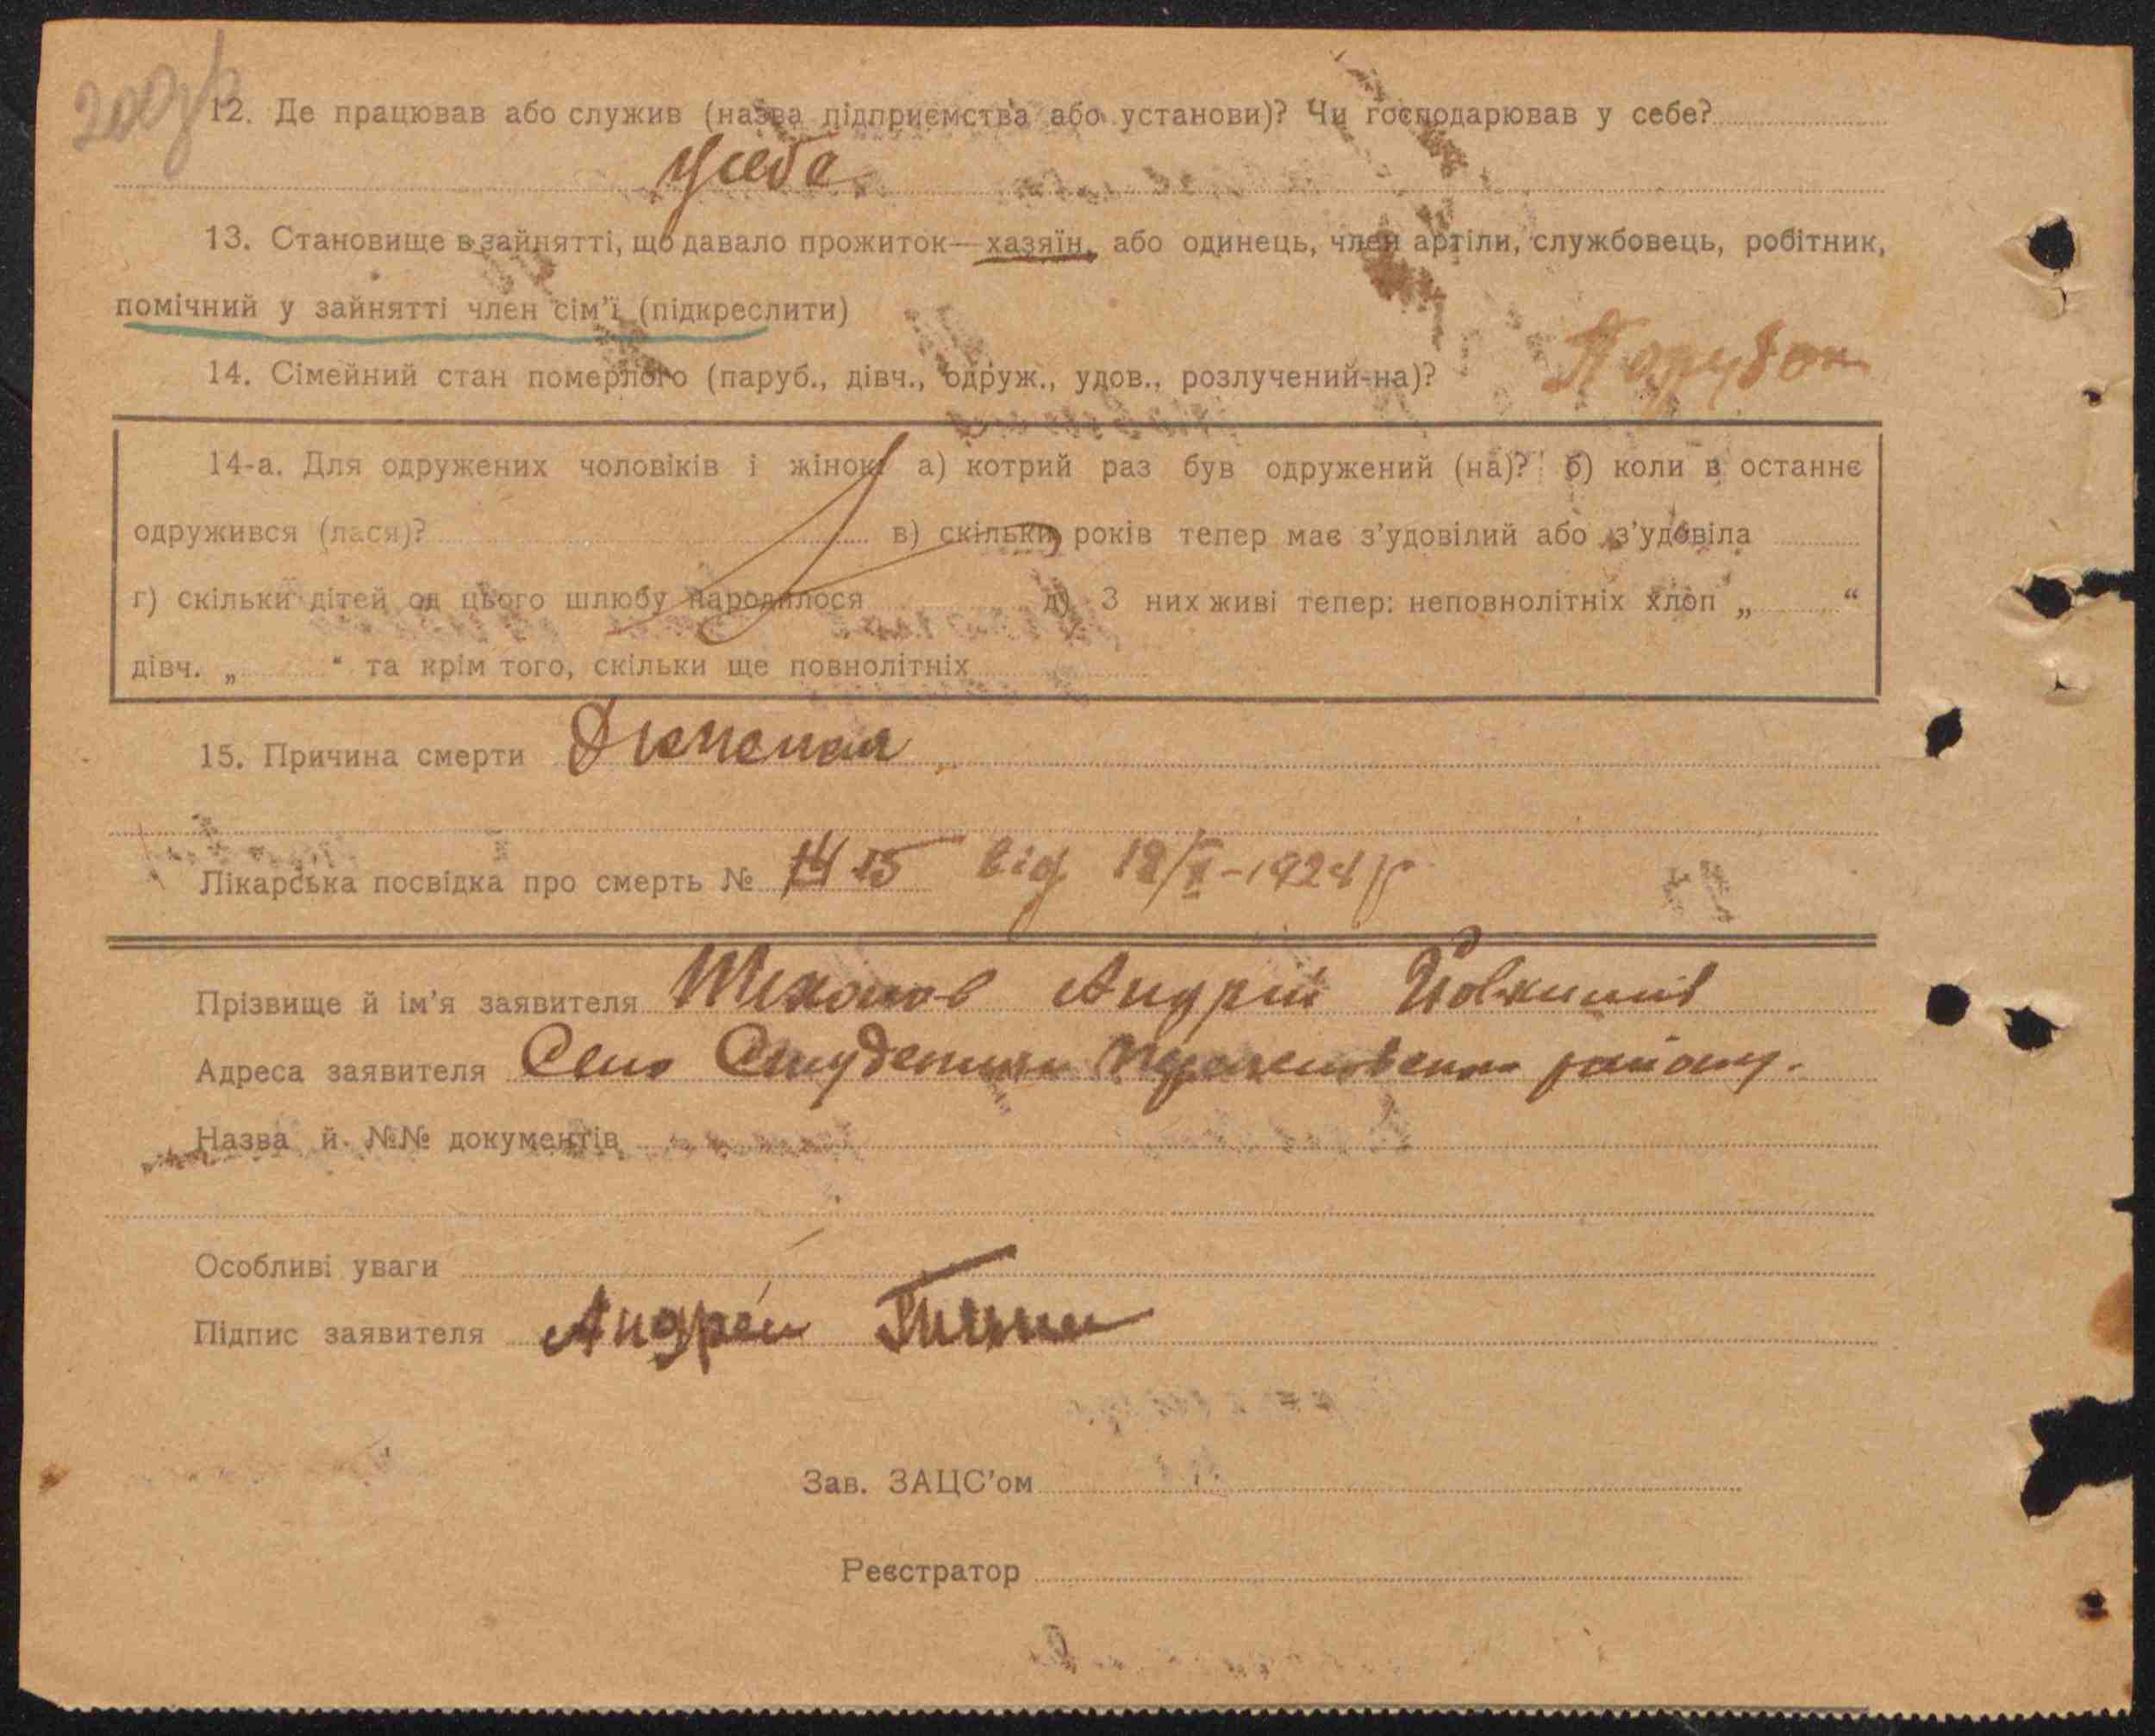 200зв
12. Де працював або служив (назва підприємства або установи)? Чи господарював у себе?
У себе
13. Становище в зайнятті, що давало прожиток—хазяїн, або одинець, член артіли, службовець, робітник,
помічний у зайнятті член сім'ї (підкреслити)
14. Сімейний стан померлого (паруб., дівч., одруж., удов., розлучений-на)? Парубок
14-а. Для одружених чоловіків і жінок: а) котрий раз був одружений (на)? б) коли в останнє
одружився (лася)? в) скільки років тепер має з'удовілий або з'удовіла
г) скільки дітей од цього шлюбу народилося д) З них живі тепер: неповнолітніх хлоп „ “
дівч. „ “ та крім того, скільки ще повнолітніх
15. Причина смерти
Лікарська посвідка про смерть № 15 від
Прізвище й ім'я заявителя Андрій
Адреса заявителя Село району.
Назва й №№ документів
Особливі уваги
Підпис заявителя Андрей
Зав. ЗАЦС'ом
Реєстратор